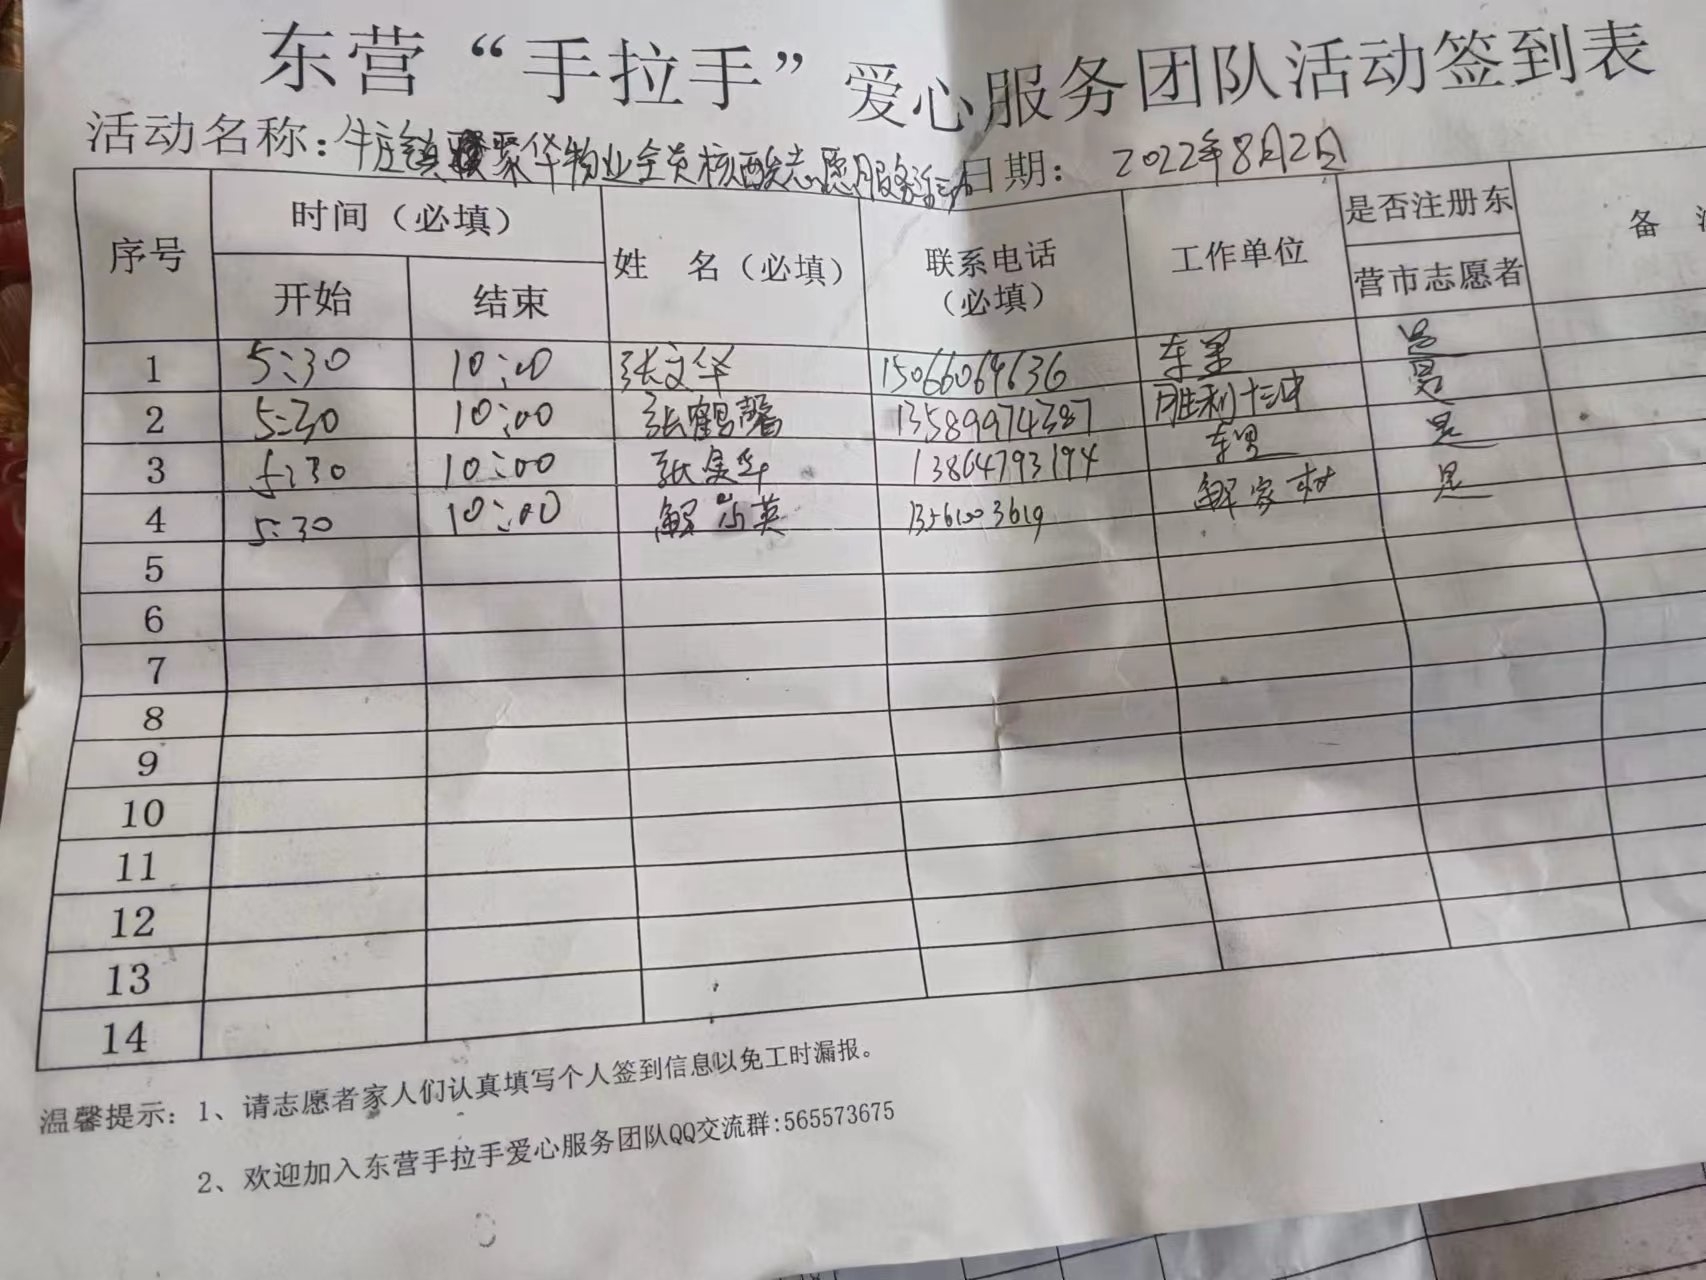 东营“手拉手”爱心服务团队活动签到表
活动名称：牛庄镇聚华物业全员核酸志愿服务活动 日期： 2022年8月2日
序号 时间（必填） 姓 名（必填） 联系电话（必填） 工作单位 是否注册东营市志愿者 备
开始 结束
1 5:30 10:00 张文华 15066064636 是
2 5:30 10:00 张鹤馨 13589974387 胜利十三中 是
3 5:30 10:00 13864793194 是
4 5:30 10:00 解 英 13561003619 解家村 是
5
6
7
8
9
10
11
12
13
14
温馨提示：1、请志愿者家人们认真填写个人签到信息以免工时漏报。
2、欢迎加入东营手拉手爱心服务团队QQ交流群:565573675